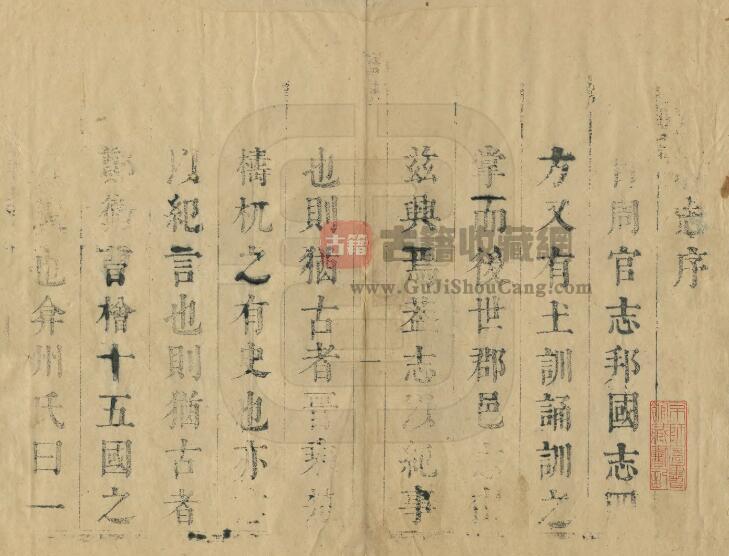 志序
周官志邦國志四
方又有土訓誦訓之
掌而後世郡邑志由
茲興焉蓋志以紀事
也則猶古者晉乘
檮杌之有史也亦
以紀言也則猶古者
鄭衛曹檜十五國之
也弇州氏曰一
古籍
古籍收藏網
www.GuJiShouCang.com